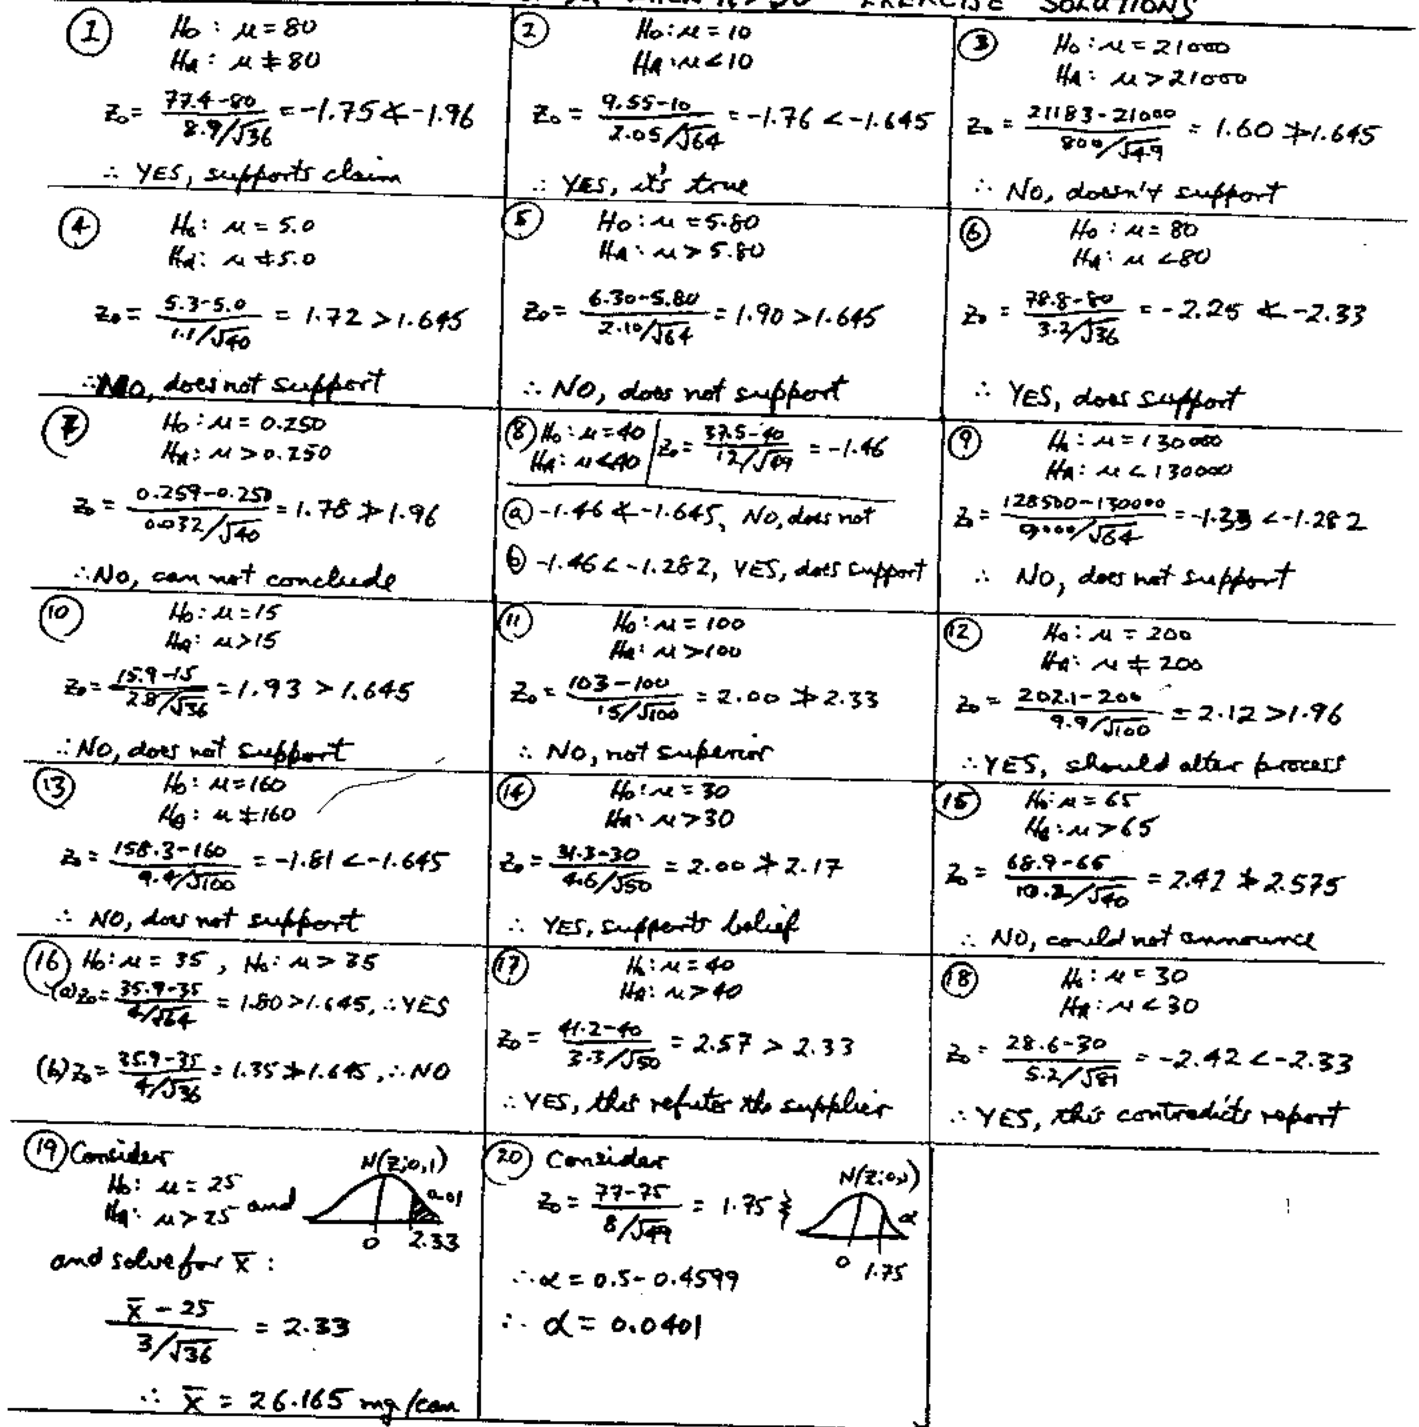 WHEN n > 30 EXERCISE SOLUTIONS
① H₀ : μ = 80
Hₐ : μ ≠ 80
z₀ = (77.4-80)/(8.9/√36) = -1.75 ≮ -1.96
∴ YES, supports claim
② H₀ : μ = 10
Hₐ : μ < 10
z₀ = (9.55-10)/(2.05/√64) = -1.76 < -1.645
∴ YES, it's true
③ H₀ : μ = 21000
Hₐ : μ > 21000
z₀ = (21183-21000)/(800/√49) = 1.60 ≯ 1.645
∴ No, doesn't support
④ H₀ : μ = 5.0
Hₐ : μ ≠ 5.0
z₀ = (5.3-5.0)/(1.1/√40) = 1.72 > 1.645
∴ No, does not support
⑤ H₀ : μ = 5.80
Hₐ : μ > 5.80
z₀ = (6.30-5.80)/(2.10/√64) = 1.90 > 1.645
∴ NO, does not support
⑥ H₀ : μ = 80
Hₐ : μ < 80
z₀ = (78.8-80)/(3.2/√36) = -2.25 ≮ -2.33
∴ YES, does support
⑦ H₀ : μ = 0.250
Hₐ : μ > 0.250
z₀ = (0.259-0.250)/(0.032/√40) = 1.78 ≯ 1.96
∴ No, can not conclude
⑧ H₀ : μ = 40
Hₐ : μ < 40
z₀ = (37.5-40)/(12/√49) = -1.46
ⓐ -1.46 ≮ -1.645, No, does not
ⓑ -1.46 < -1.282, YES, does support
⑨ H₀ : μ = 130000
Hₐ : μ < 130000
z₀ = (128500-130000)/(9000/√64) = -1.33 < -1.282
∴ No, does not support
⑩ H₀ : μ = 15
Hₐ : μ > 15
z₀ = (15.9-15)/(2.8/√36) = 1.93 > 1.645
∴ No, does not support
⑪ H₀ : μ = 100
Hₐ : μ > 100
z₀ = (103-100)/(15/√100) = 2.00 ≯ 2.33
∴ No, not superior
⑫ H₀ : μ = 200
Hₐ : μ ≠ 200
z₀ = (202.1-200)/(9.9/√100) = 2.12 > 1.96
∴ YES, should alter process
⑬ H₀ : μ = 160
Hₐ : μ ≠ 160
z₀ = (158.3-160)/(9.4/√100) = -1.81 < -1.645
∴ NO, does not support
⑭ H₀ : μ = 30
Hₐ : μ > 30
z₀ = (31.3-30)/(4.6/√50) = 2.00 ≯ 2.17
∴ YES, supports belief
⑮ H₀ : μ = 65
Hₐ : μ > 65
z₀ = (68.9-65)/(10.2/√40) = 2.42 ≯ 2.575
∴ NO, could not announce
⑯ H₀ : μ = 35, H₀ : μ > 35
(a) z₀ = (35.9-35)/(4/√64) = 1.80 > 1.645, ∴ YES
(b) z₀ = (35.9-35)/(4/√36) = 1.35 ≯ 1.645, ∴ NO
⑰ H₀ : μ = 40
Hₐ : μ > 40
z₀ = (41.2-40)/(3.3/√50) = 2.57 > 2.33
∴ YES, this refutes the supplier
⑱ H₀ : μ = 30
Hₐ : μ < 30
z₀ = (28.6-30)/(5.2/√81) = -2.42 < -2.33
∴ YES, this contradicts report
⑲ Consider
H₀ : μ = 25
Hₐ : μ > 25 and
N(Z;0,1)
0.01
0 2.33
and solve for x̄ :
(x̄ - 25)/(3/√36) = 2.33
∴ x̄ = 26.165 mg/can
⑳ Consider
z₀ = (77-75)/(8/√49) = 1.75 ⸾
N(Z;0,1)
α
0 1.75
∴ α = 0.5 - 0.4599
∴ α = 0.0401